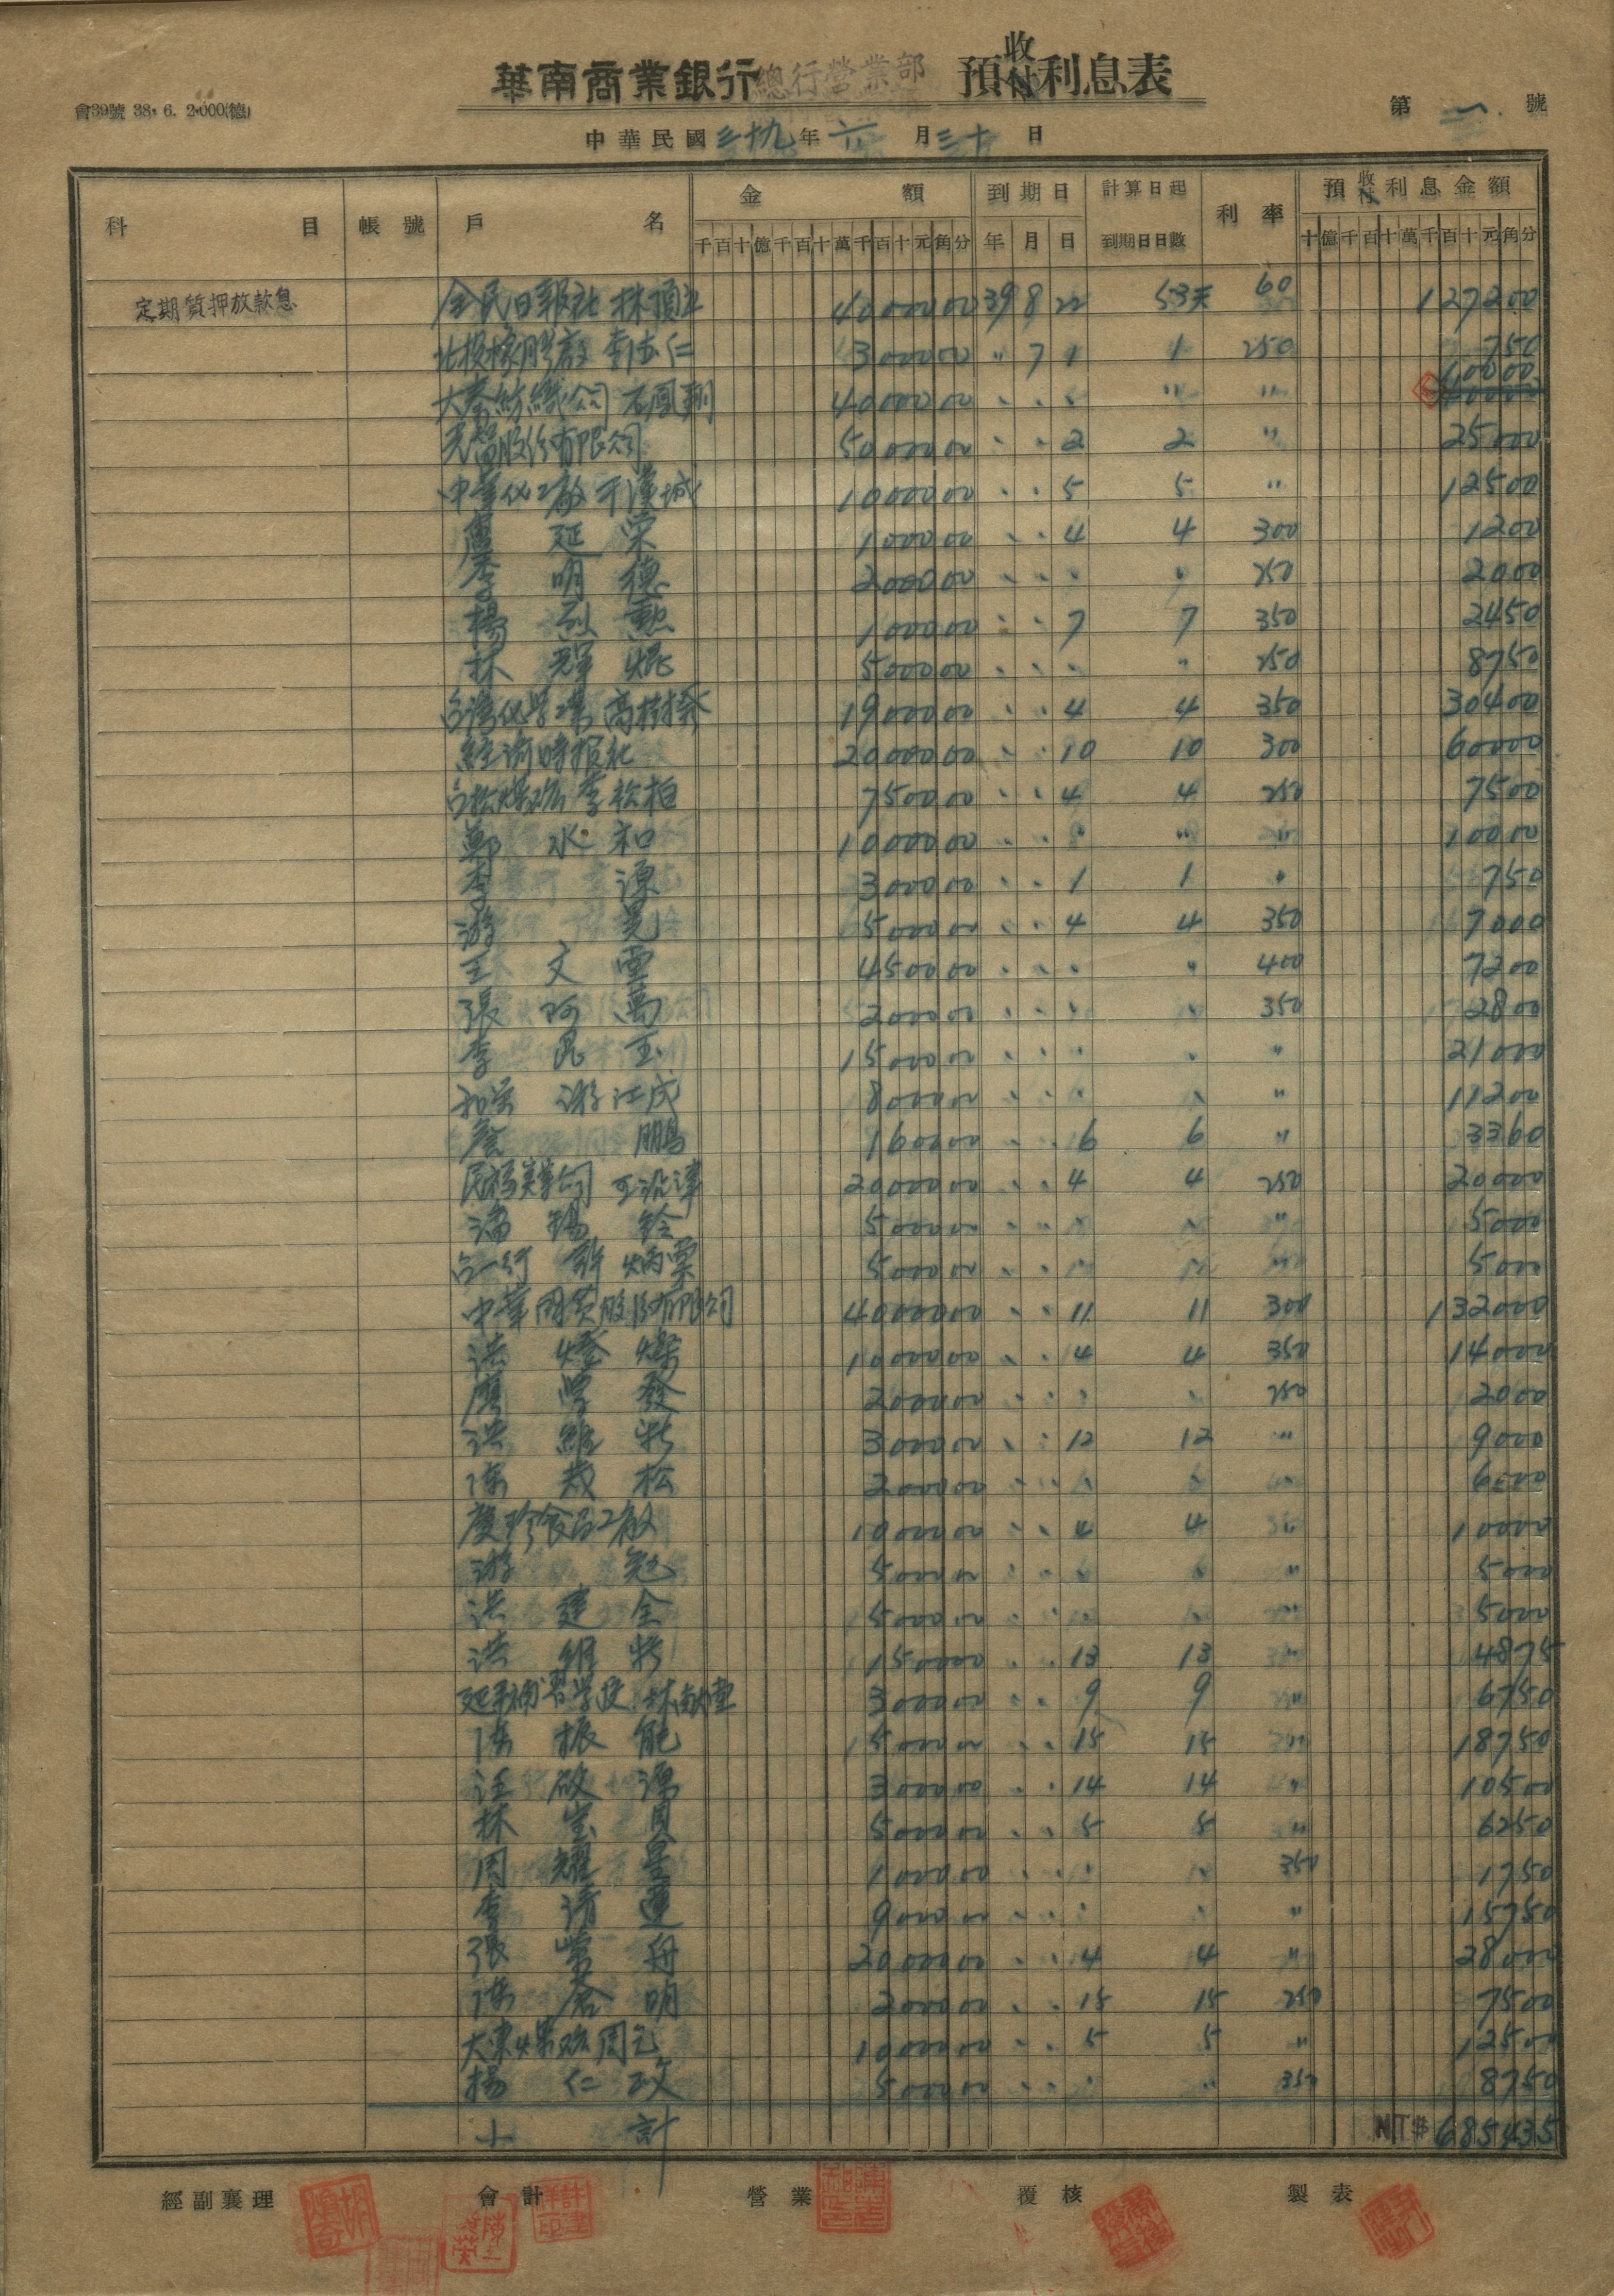 華南商業銀行總行營業部 預收利息表
會39號 38. 6. 2.000(德)
第 一 號
中華民國三十九年六月三十日
科目 帳號 戶名 金額 到期日 計算日起到期日日數 利率 預收利息金額
千百十億千百十萬千百十元角分 年 月 日 十億千百十萬千百十元角分
定期質押放款息 全民日報社 林頂立 4000000 39 8 22 53天 60 127200
北投橡膠廠 李 仁 300000 〃 7 1 1 250 750
大秦紡織公司 石鳳翔 4000000 〃 〃 〃 〃 〃 10000
股份有限公司 5000000 〃 〃 2 2 〃 25000
中華化工廠 于漢城 1000000 〃 〃 5 5 〃 12500
廖延榮 100000 〃 〃 4 4 300 1200
李明德 200000 〃 〃 〃 〃 250 2000
楊烈勳 100000 〃 〃 7 7 350 2450
林輝焜 500000 〃 〃 〃 〃 250 8750
台灣化學工業 高樹 1900000 〃 〃 4 4 350 30400
經濟時報社 2000000 〃 〃 10 10 300 60000
台松煤礦 李松柏 750000 〃 〃 4 4 250 7500
鄭水和 1000000 〃 〃 〃 〃 〃 10000
李源 300000 〃 〃 1 1 〃 750
游晃 500000 〃 〃 4 4 350 7000
王文雲 450000 〃 〃 〃 〃 400 7200
張阿萬 200000 〃 〃 〃 〃 350 2800
李昆玉 1500000 〃 〃 〃 〃 〃 21000
和榮 游江成 800000 〃 〃 〃 〃 〃 11200
詹鵬 160000 〃 〃 6 6 〃 3360
公司 王沿津 2000000 〃 〃 4 4 250 20000
潘錫銓 500000 〃 〃 〃 〃 〃 5000
台一行 許炳票 500000 〃 〃 〃 〃 〃 5000
中華國貨股份有限公司 4000000 〃 〃 11 11 300 132000
洪燈燦 1000000 〃 〃 4 4 350 14000
廖學發 200000 〃 〃 〃 〃 250 2000
洪維 300000 〃 〃 12 12 〃 9000
陳茂松 200000 〃 〃 〃 〃 〃 6000
廣珍食品工廠 1000000 〃 〃 4 4 〃 10000
游冠 500000 〃 〃 〃 〃 〃 5000
洪建全 500000 〃 〃 〃 〃 〃 5000
洪維 150000 〃 〃 13 13 〃 4875
延平補習學校 林献堂 300000 〃 〃 9 9 〃 6750
陳振能 500000 〃 〃 15 15 〃 18750
汪 鴻 300000 〃 〃 14 14 〃 10500
林 貝 500000 〃 〃 5 5 〃 6250
周耀星 100000 〃 〃 〃 〃 350 1750
李清連 900000 〃 〃 〃 〃 〃 15750
張榮舟 2000000 〃 〃 4 4 〃 28000
陳倉明 200000 〃 〃 15 15 250 7500
大東煤礦 周元 1000000 〃 〃 5 5 〃 12500
楊仁政 500000 〃 〃 〃 〃 350 8750
小計 NT$685435
經副襄理 會計 營業 覆核 製表